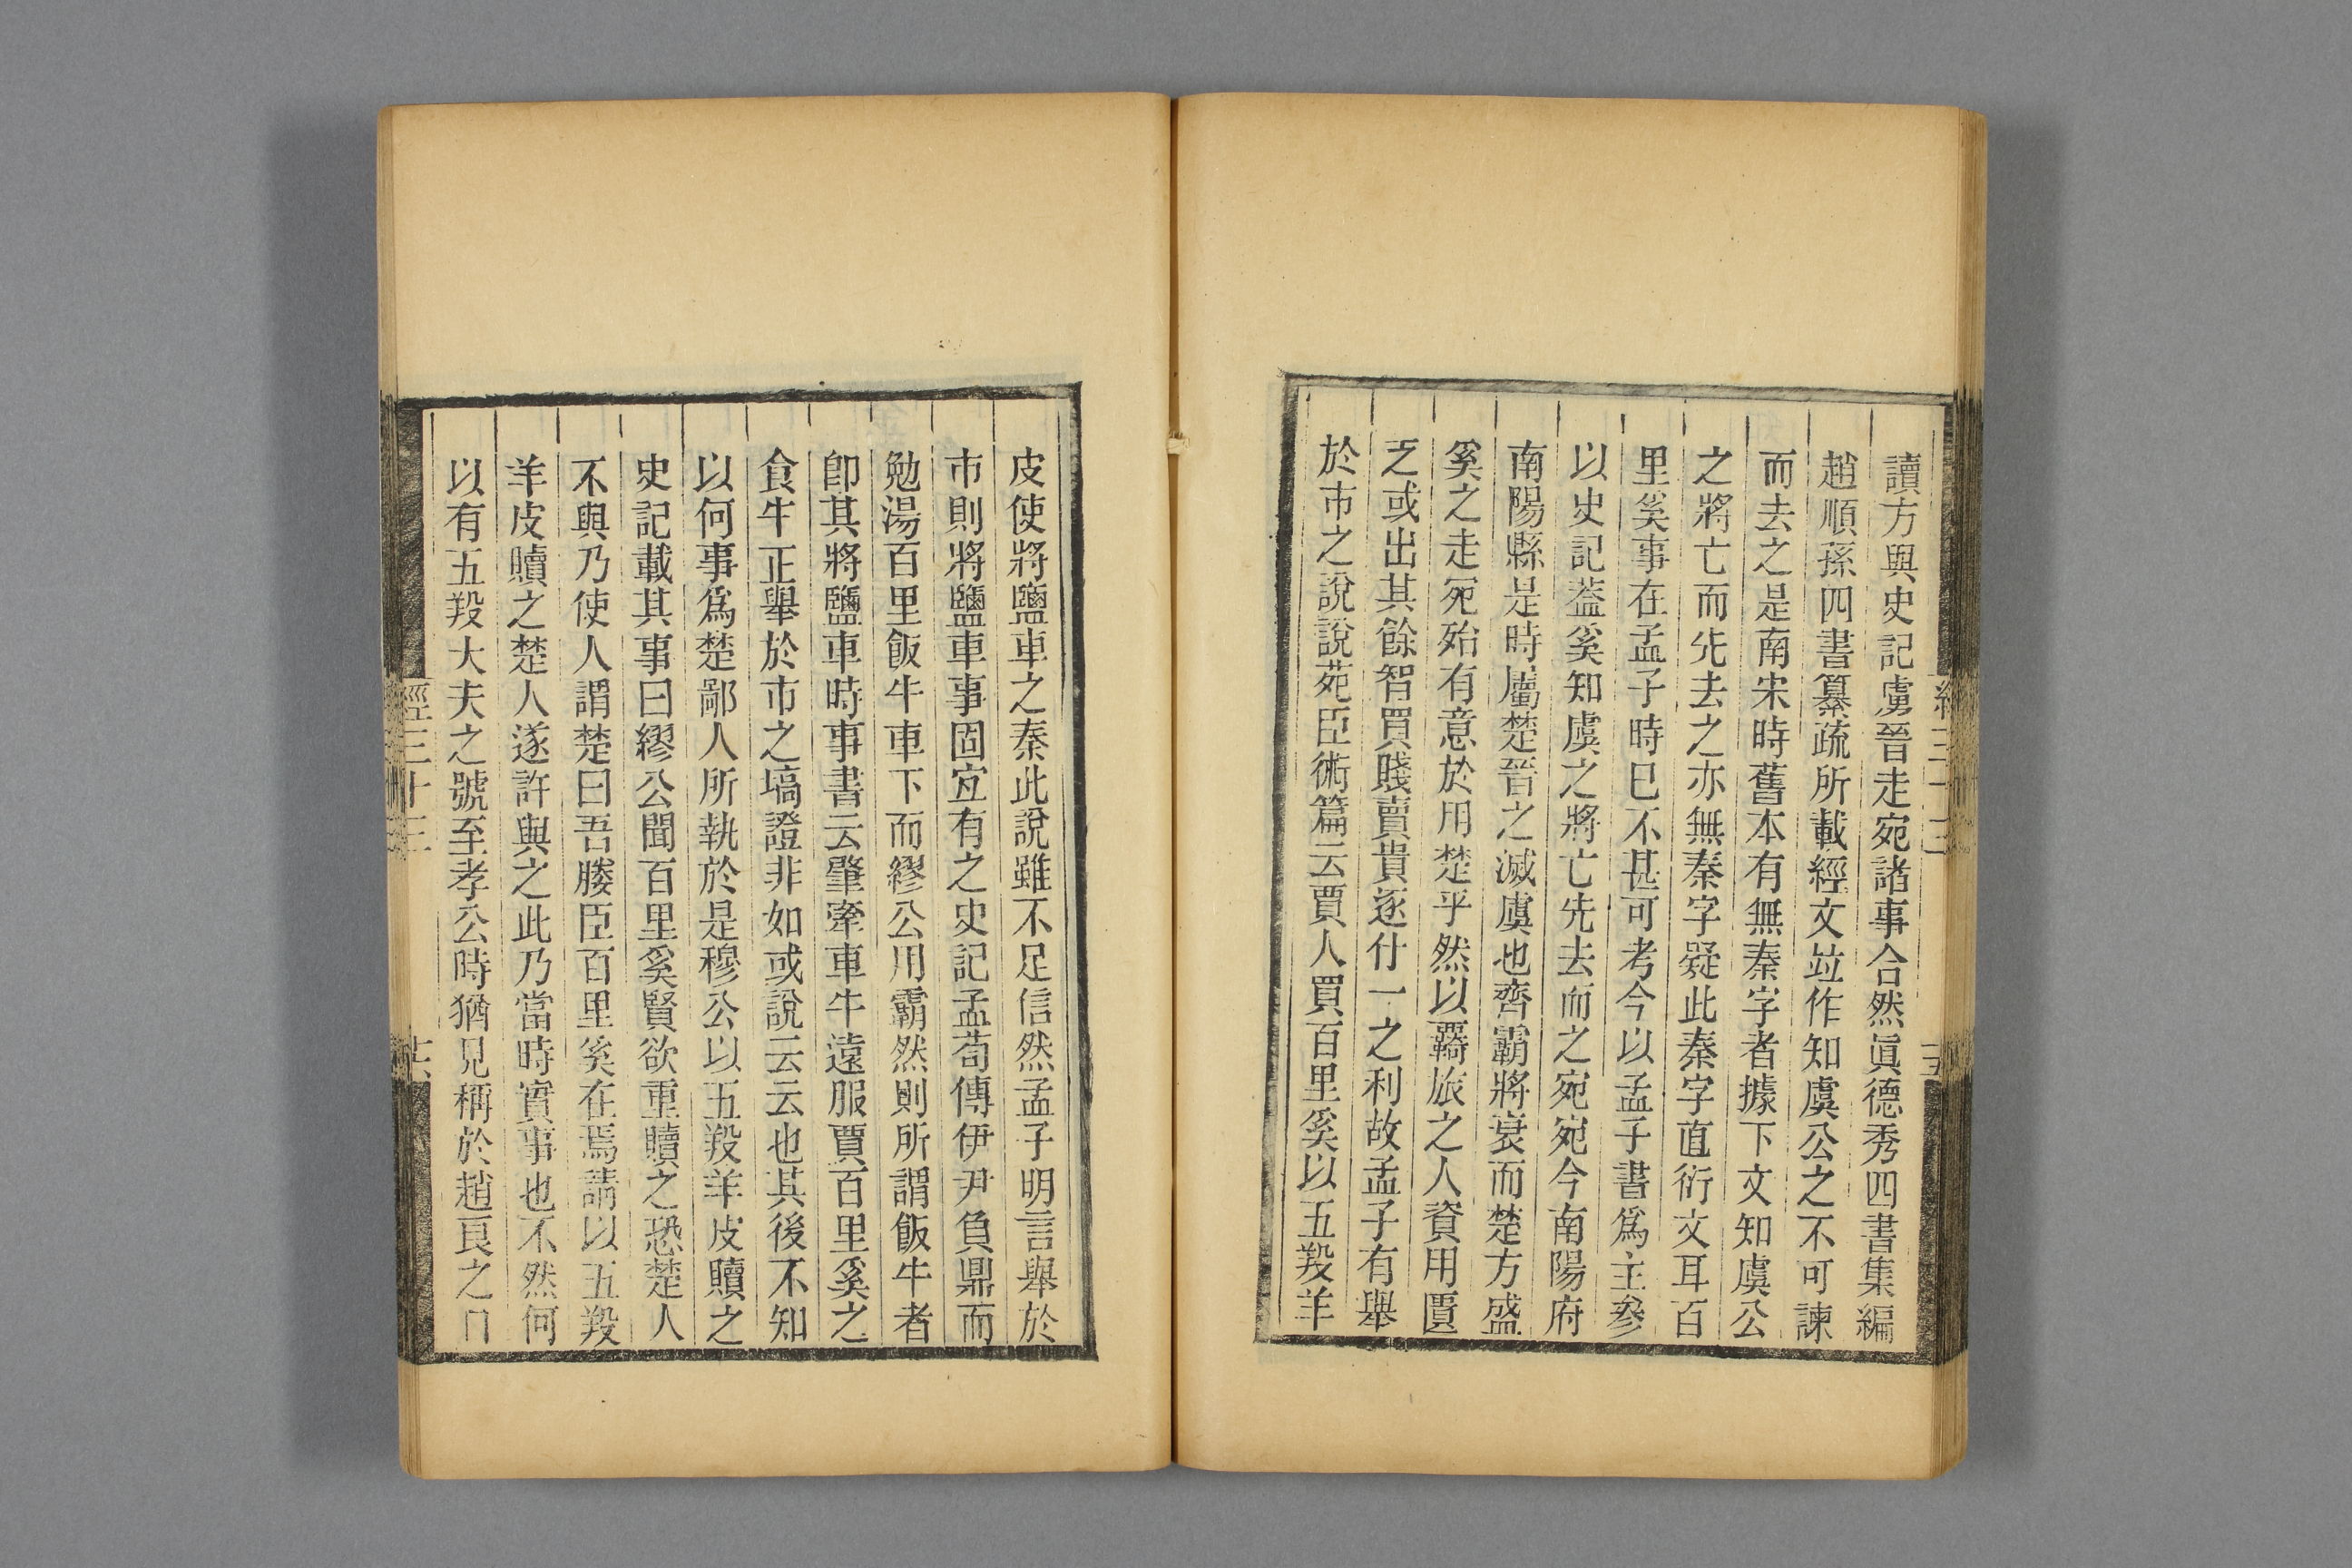 讀方與史記虜晉走宛諸事合然眞德秀四書集編
趙順孫四書纂疏所載經文竝作知虞公之不可諫
而去之是南宋時舊本有無秦字者據下文知虞公
之將亡而先去之亦無秦字疑此秦字直衍文耳百
里奚事在孟子時已不甚可考今以孟子書爲主參
以史記葢奚知虞之將亡先去而之宛宛今南陽府
南陽縣是時屬楚晉之滅虞也齊霸將衰而楚方盛
奚之走宛殆有意於用楚乎然以羇旅之人資用匱
乏或出其餘智買賤賣貴逐什一之利故孟子有舉
於市之說說苑臣術篇云賈人買百里奚以五羖羊
皮使將鹽車之秦此說雖不足信然孟子明言舉於
市則將鹽車事固宜有之史記孟荀傳伊尹負鼎而
勉湯百里飯牛車下而繆公用霸然則所謂飯牛者
卽其將鹽車時事書云肇牽車牛遠服賈百里奚之
食牛正舉於市之塙證非如或說云云也其後不知
以何事爲楚鄙人所執於是穆公以五羖羊皮贖之
史記載其事曰繆公聞百里奚賢欲重贖之恐楚人
不與乃使人謂楚曰吾媵臣百里奚在焉請以五羖
羊皮贖之楚人遂許與之此乃當時實事也不然何
以有五羖大夫之號至孝公時猶見稱於趙良之口
經三十三
十六